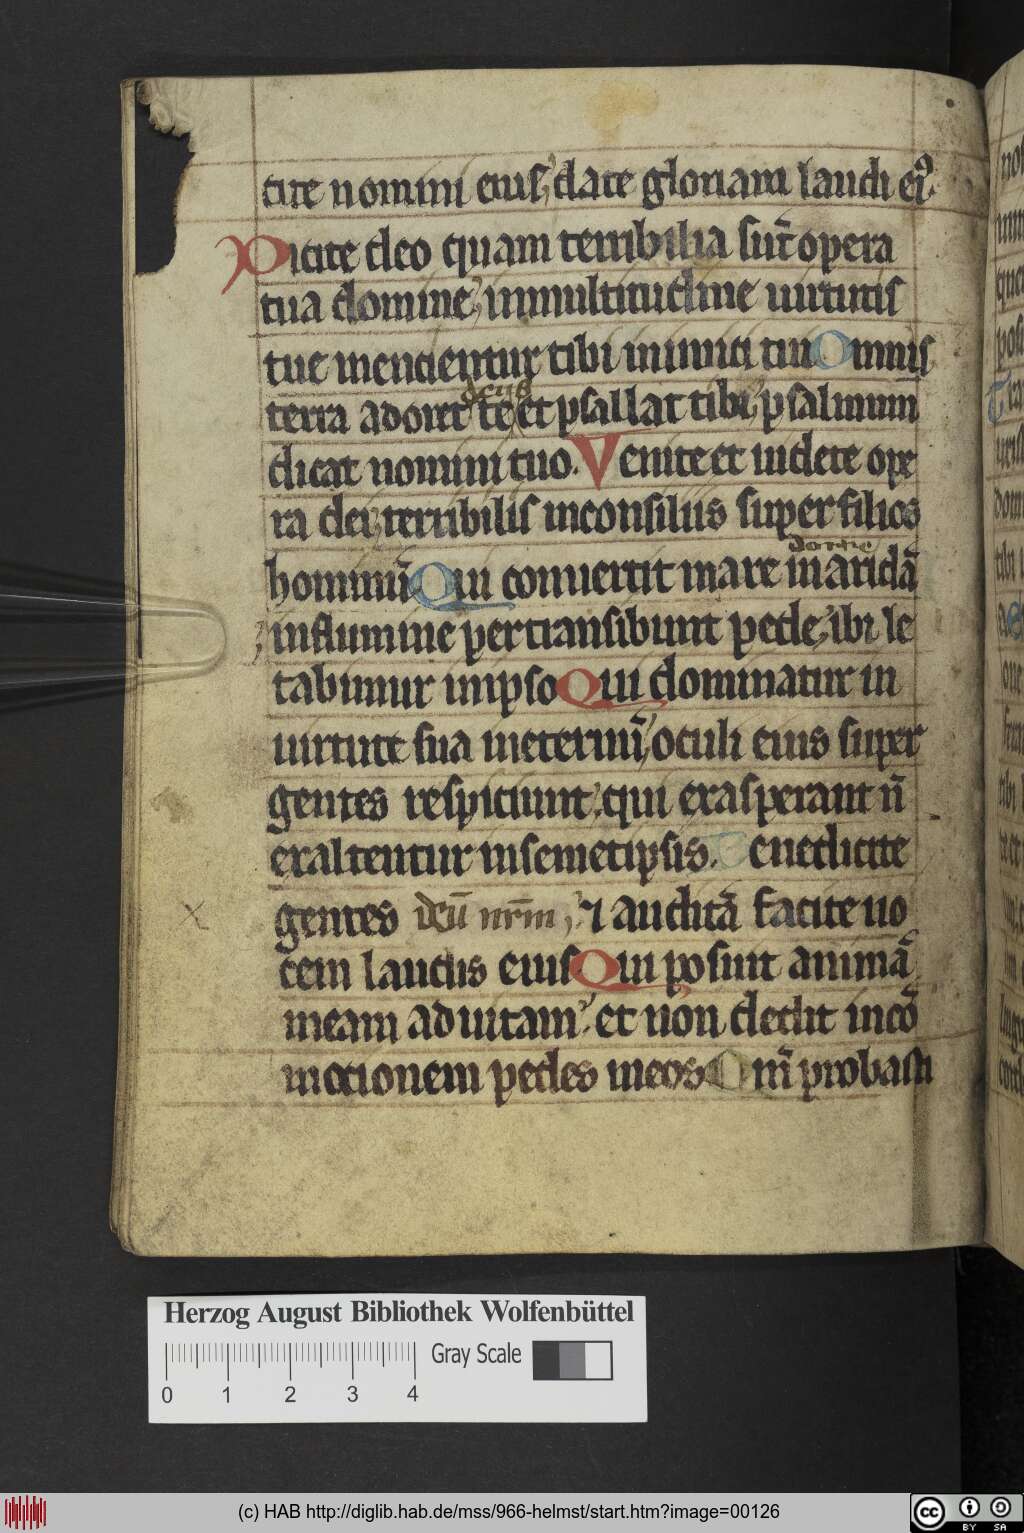 cite nomini eius, date gloriam laudi ei⁹.
Dicite deo quam terribilia sūt opera
tua domine, inmultitudine uirtutis
tue mencientur tibi inimici tui Omnis
deus
terra adoret te et psallat tibi, psalmum
dicat nomini tuo. Venite et uidete ope
ra dei, terribilis inconsiliis super filios
hominū Qui conuertit mare in aridā
influmine pertransibunt pede, ibi le
tabimur inipso Qui dominatur in
uirtute sua ineternū, oculi eius super
gentes respiciunt, qui exasperant n̄
exaltentur insemetipsis. Benedicite
gentes deū nr̄m, ⁊ auditā facite uo
cem laudis eius Qui posuit animā
meam ad uitam, et non dedit incō
mocionem pedes meos Qm̄ probasti
Herzog August Bibliothek Wolfenbüttel
0 1 2 3 4 Gray Scale
(c) HAB http://diglib.hab.de/mss/966-helmst/start.htm?image=00126
cc BY SA